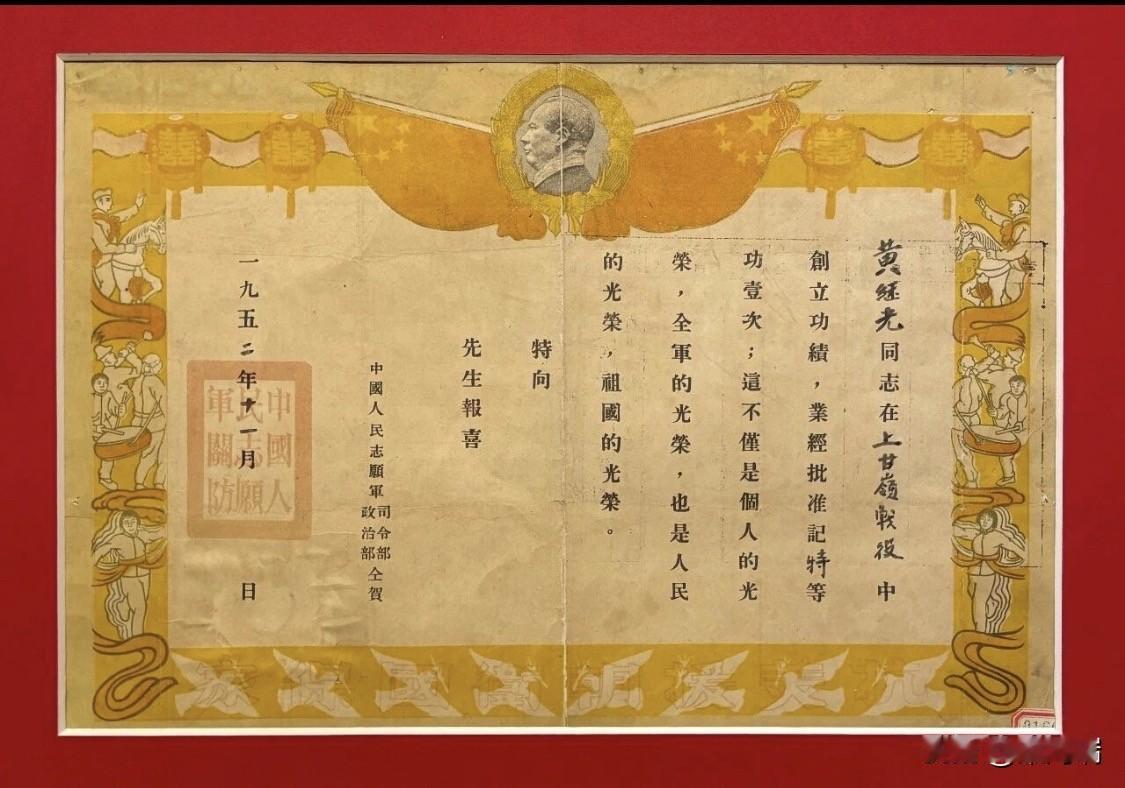 黃继光同志在上甘嶺戰役中
創立功績，業經批准記特等
功壹次；這不僅是個人的光
榮，全軍的光榮，也是人民
的光榮，祖國的光榮。
特向
先生報喜
中國人民志願軍司令部政治部仝賀
一九五二年十一月 日
中國人
民志願
軍關防